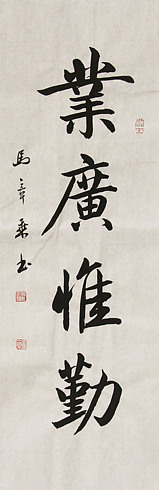 業廣惟勤
馬章乘书